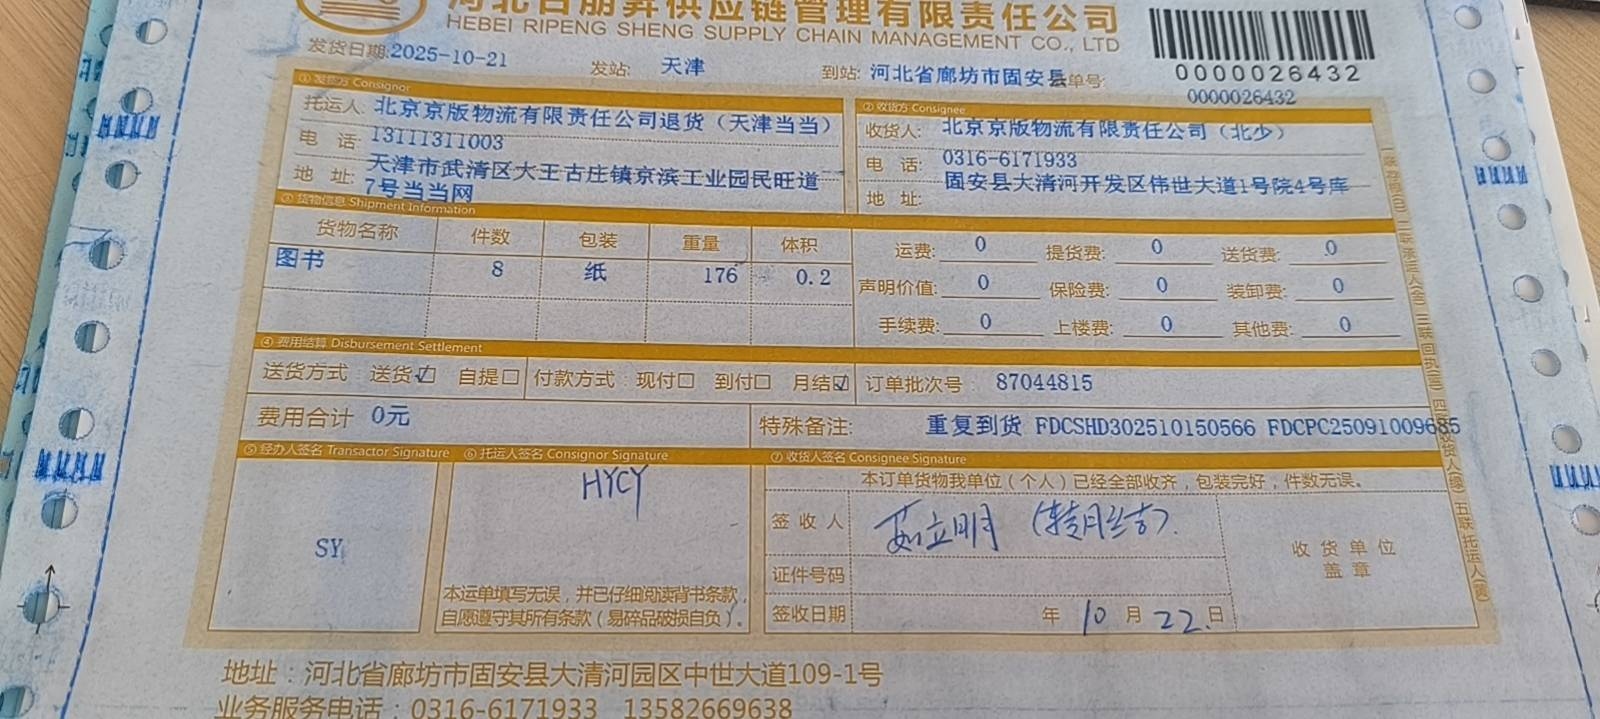 河北日朋昇供应链管理有限责任公司
HEBEI RIPENG SHENG SUPPLY CHAIN MANAGEMENT CO., LTD
发货日期:2025-10-21 发站: 天津 到站: 河北省廊坊市固安县 单号:
0000026432
0000026432
① 发货方 Consignor ② 收货方 Consignee
托运人: 北京京版物流有限责任公司退货（天津当当） 收货人: 北京京版物流有限责任公司（北少）
电 话: 13111311003 电 话: 0316-6171933
地 址: 天津市武清区大王古庄镇京滨工业园民旺道7号当当网 地 址: 固安县大清河开发区伟世大道1号院4号库
③ 货物信息 Shipment Information
货物名称 件数 包装 重量 体积 运费: 0 提货费: 0 送货费: 0
图书 8 纸 176 0.2 声明价值: 0 保险费: 0 装卸费: 0
手续费: 0 上楼费: 0 其他费: 0
④ 费用结算 Disbursement Settlement
送货方式 送货☑ 自提☐ 付款方式: 现付☐ 到付☐ 月结☑ 订单批次号 87044815
费用合计 0元 特殊备注: 重复到货 FDCSHD302510150566 FDCPC25091009685
⑤ 经办人签名 Transactor Signature ⑥ 托运人签名 Consignor Signature ⑦ 收货人签名 Consignee Signature
本订单货物我单位（个人）已经全部收齐，包装完好，件数无误。
SY
HYCY
签收人 茹立明（转月结）.
收货单位
盖章
证件号码
本运单填写无误，并已仔细阅读背书条款，
自愿遵守其所有条款（易碎品破损自负）。
签收日期 年 10 月 22. 日
地址：河北省廊坊市固安县大清河园区中世大道109-1号
业务服务电话：0316-6171933 13582669638